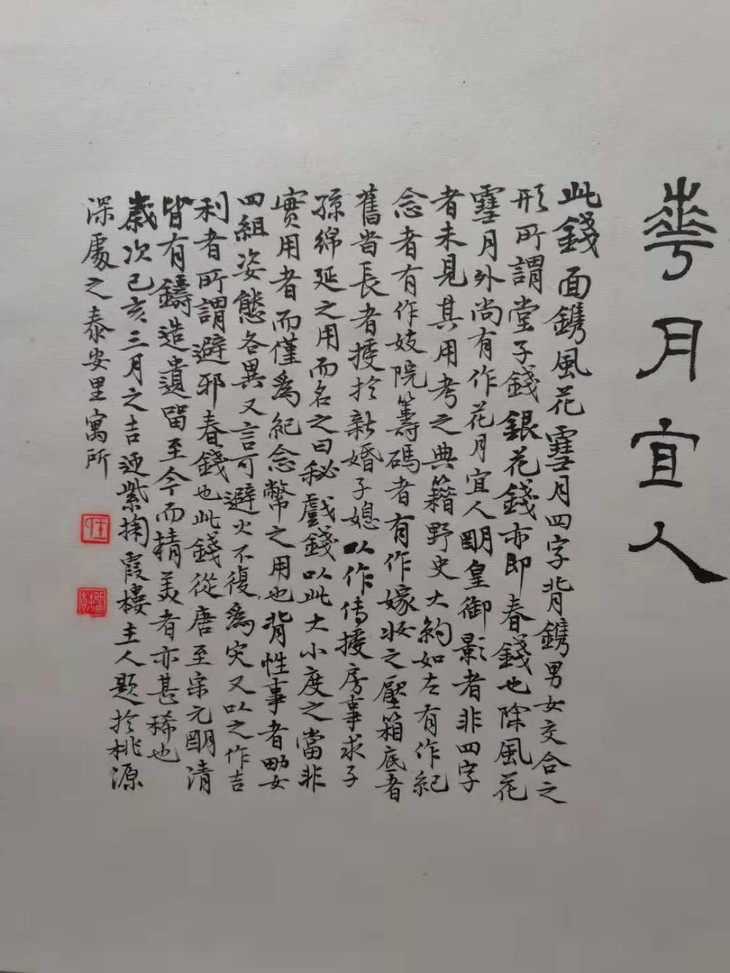 華月宜人
此錢面鐫風花雪月四字背鐫男女交合之
形所謂堂子錢銀花錢亦即春錢也除風花
雪月外尚有作花月宜人明皇御影者非四字
者未見其用考之典籍野史大約如左有作紀
念者有作妓院籌碼者有作嫁妝之壓箱底者
舊當長者授於新婚子媳以作傳授房事求子
孫綿延之用而名之曰秘戲錢以此大小度之當非
實用者而僅為紀念幣之用也背性事者男女
四組姿態各異又言可避火不復為灾又以之作吉
利者所謂避邪春錢也此錢從唐至宋元明清
皆有鑄造遺留至今而精美者亦甚稀也
歲次己亥三月之吉迎紫掬霞樓主人題於桃源
深處之泰安里寓所